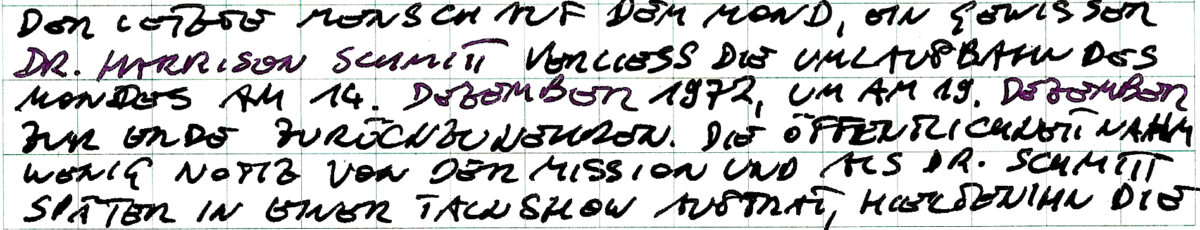 DER LETZTE MENSCH AUF DEM MOND, EIN GEWISSER
DR. HARRISON SCHMITT VERLIESS DIE UMLAUFBAHN DES
MONDES AM 14. DEZEMBER 1972, UM AM 19. DEZEMBER
ZUR ERDE ZURÜCKZUKEHREN. DIE ÖFFENTLICHKEIT NAHM
WENIG NOTIZ VON DER MISSION UND ALS DR. SCHMITT
SPÄTER IN EINER TALKSHOW AUFTRAT, HIELTEN IHN DIE